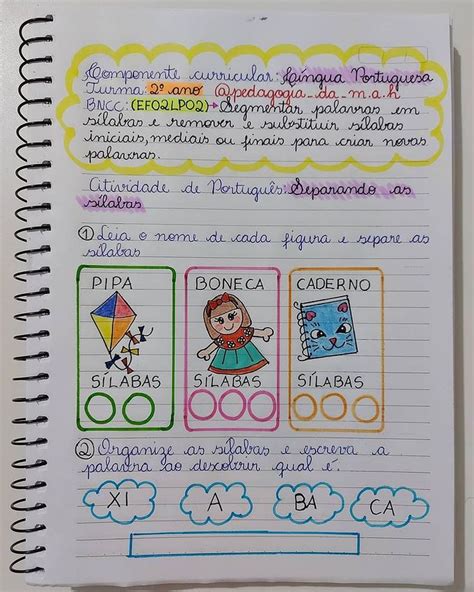 Componente curricular: Língua Portuguesa
Turma: 2º ano @pedagogia_da_m.a.h
BNCC: (EF02LP02) → Segmentar palavras em
sílabas e remover e substituir sílabas
iniciais, mediais ou finais para criar novas
palavras.
Atividade de Português: Separando as
sílabas
1 Leia o nome de cada figura e separe as
sílabas
PIPA BONECA CADERNO
SÍLABAS SÍLABAS SÍLABAS
2 Organize as sílabas e escreva a
palavra ao descobrir qual é.
XI A BA CA